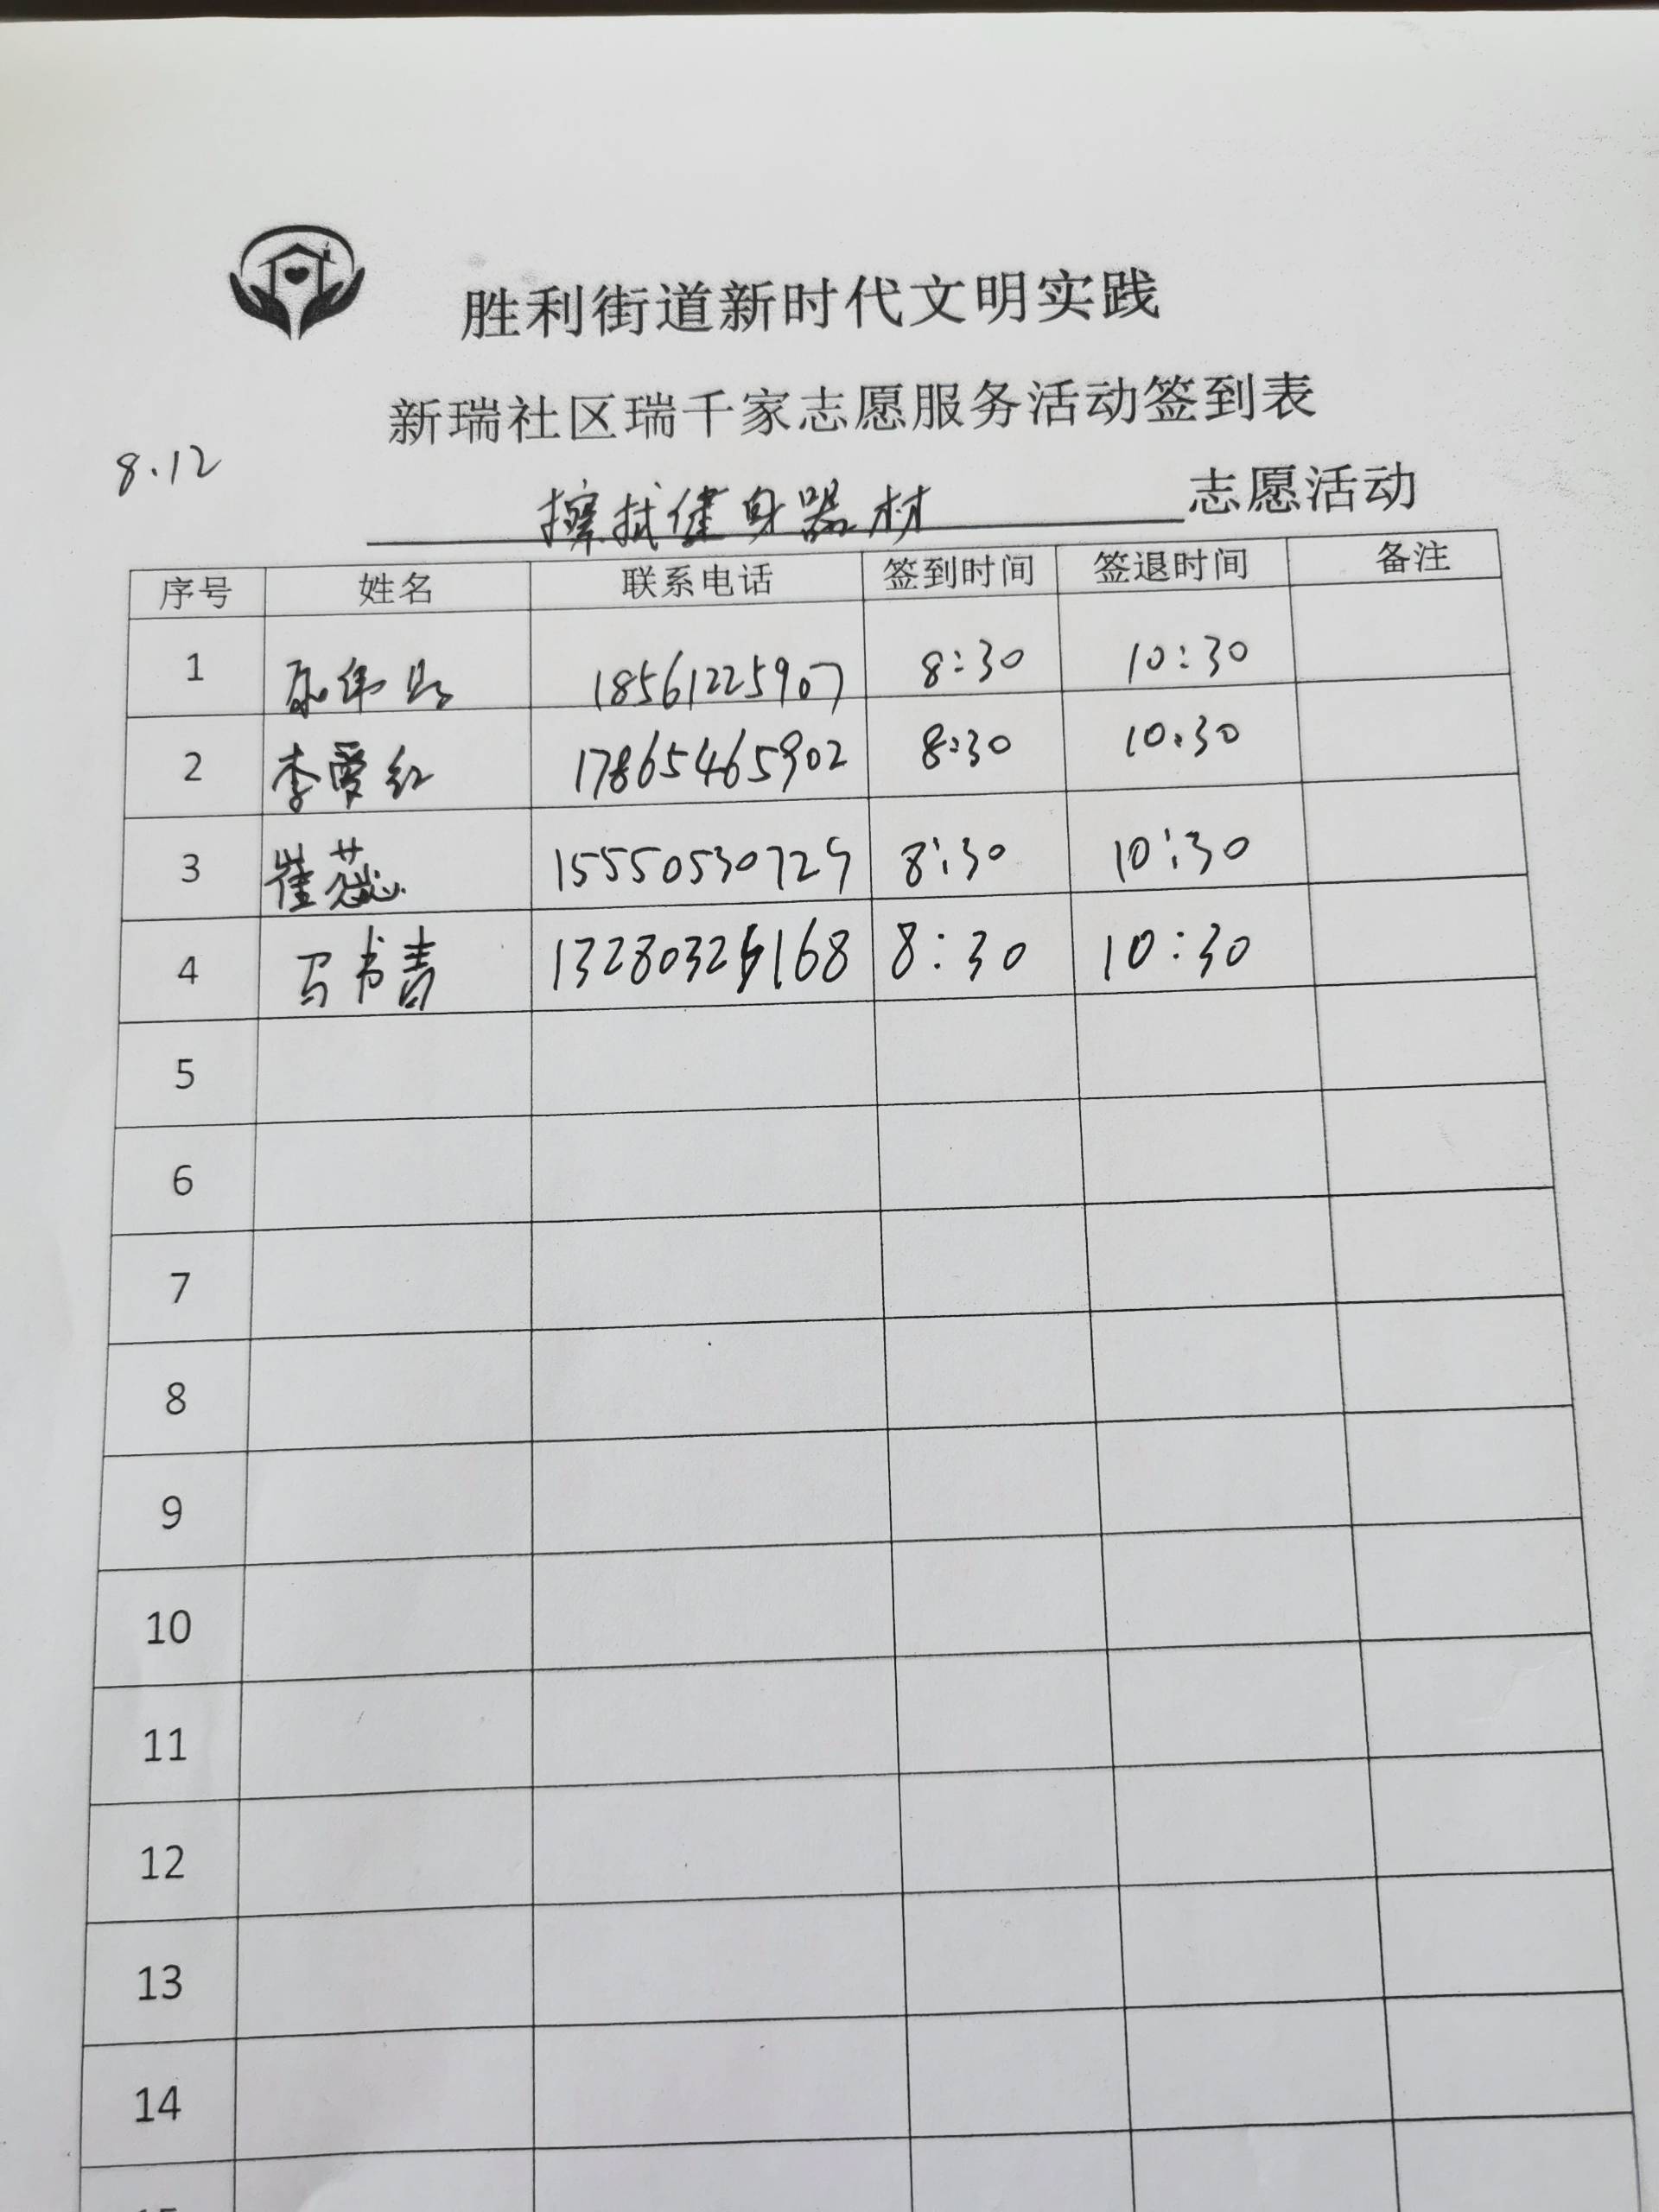 胜利街道新时代文明实践
新瑞社区瑞千家志愿服务活动签到表
8.12
擦拭健身器材 志愿活动
序号 姓名 联系电话 签到时间 签退时间 备注
1 18561225907 8:30 10:30
2 李爱红 17865465902 8:30 10:30
3 崔蕊 15550530725 8:30 10:30
4 马书青 13280325168 8:30 10:30
5
6
7
8
9
10
11
12
13
14